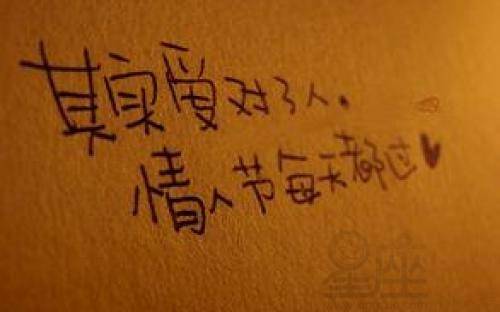 其实爱对了人。
情人节每天都过♥
星座